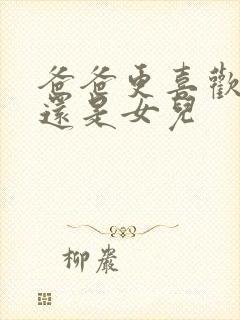 爸爸更喜歡
還是女兒
柳巖